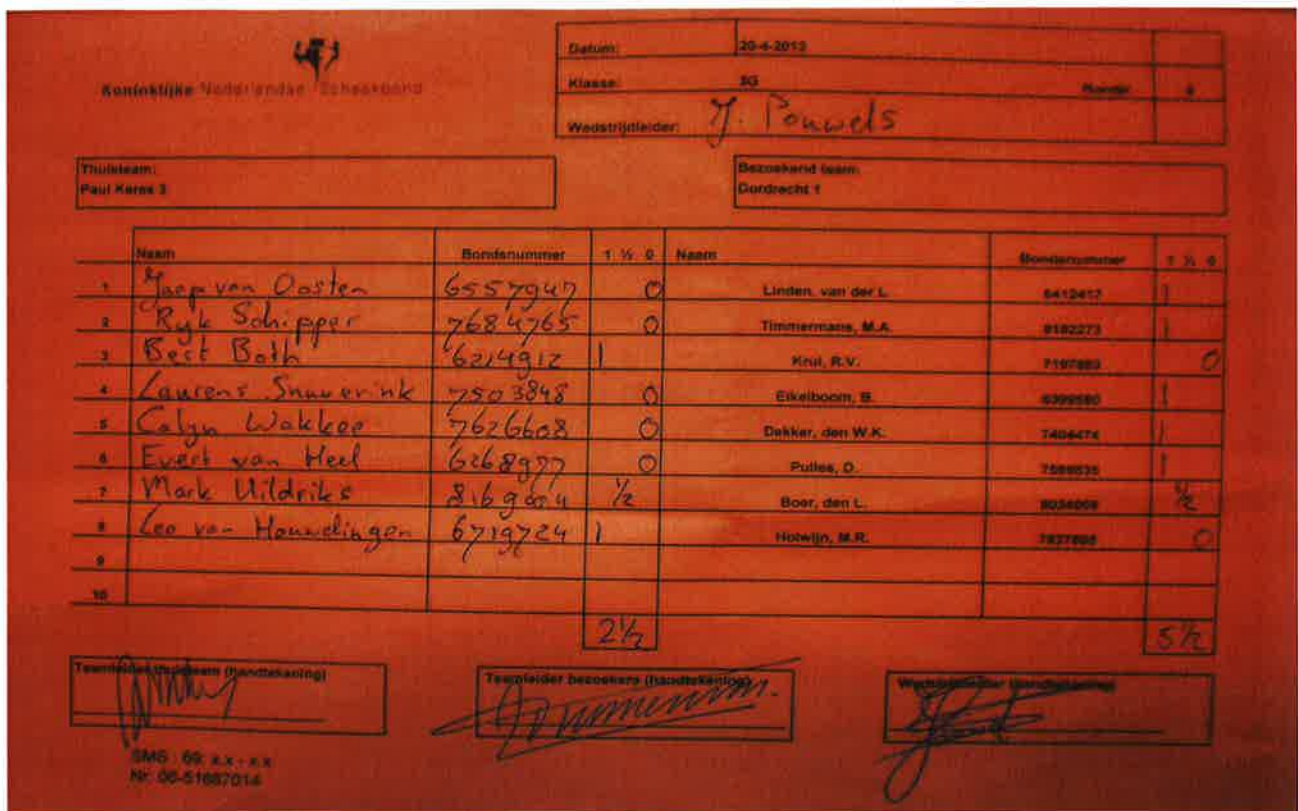 Koninklijke Nederlandse Schaakbond
Datum: 20-4-2013
Klasse: 3G Ronde:
Wedstrijdleider: J. Pouwels
Thuisteam:
Paul Keres 3
Bezoekend team:
Dordrecht 1
Naam Bondsnummer 1 ½ 0 Naam Bondsnummer 1 ½ 0
1 Jaap van Oosten 6557947 0 Linden, van der L. 6412417 1
2 Ryk Schipper 7684765 0 Timmermans, M.A. 8182273 1
3 Bert Both 6214912 1 Krul, R.V. 0
4 Laurens Snuverink 7503848 0 Eikelboom, B. 1
5 Calyn Wakkee 7626608 0 Dekker, den W.K. 7404474 1
6 Evert van Heel 6268977 0 Putles, D. 1
7 Mark Uildriks ½ Boer, den L. ½
8 Leo van Houwelingen 6719724 1 Holwijn, M.R. 0
9
10
2½ 5½
Teamleider thuisteam (handtekening)
Teamleider bezoekers (handtekening)
Wedstrijdleider (handtekening)
SMS : 69: x.x - x.x
Nr: 06-51687014